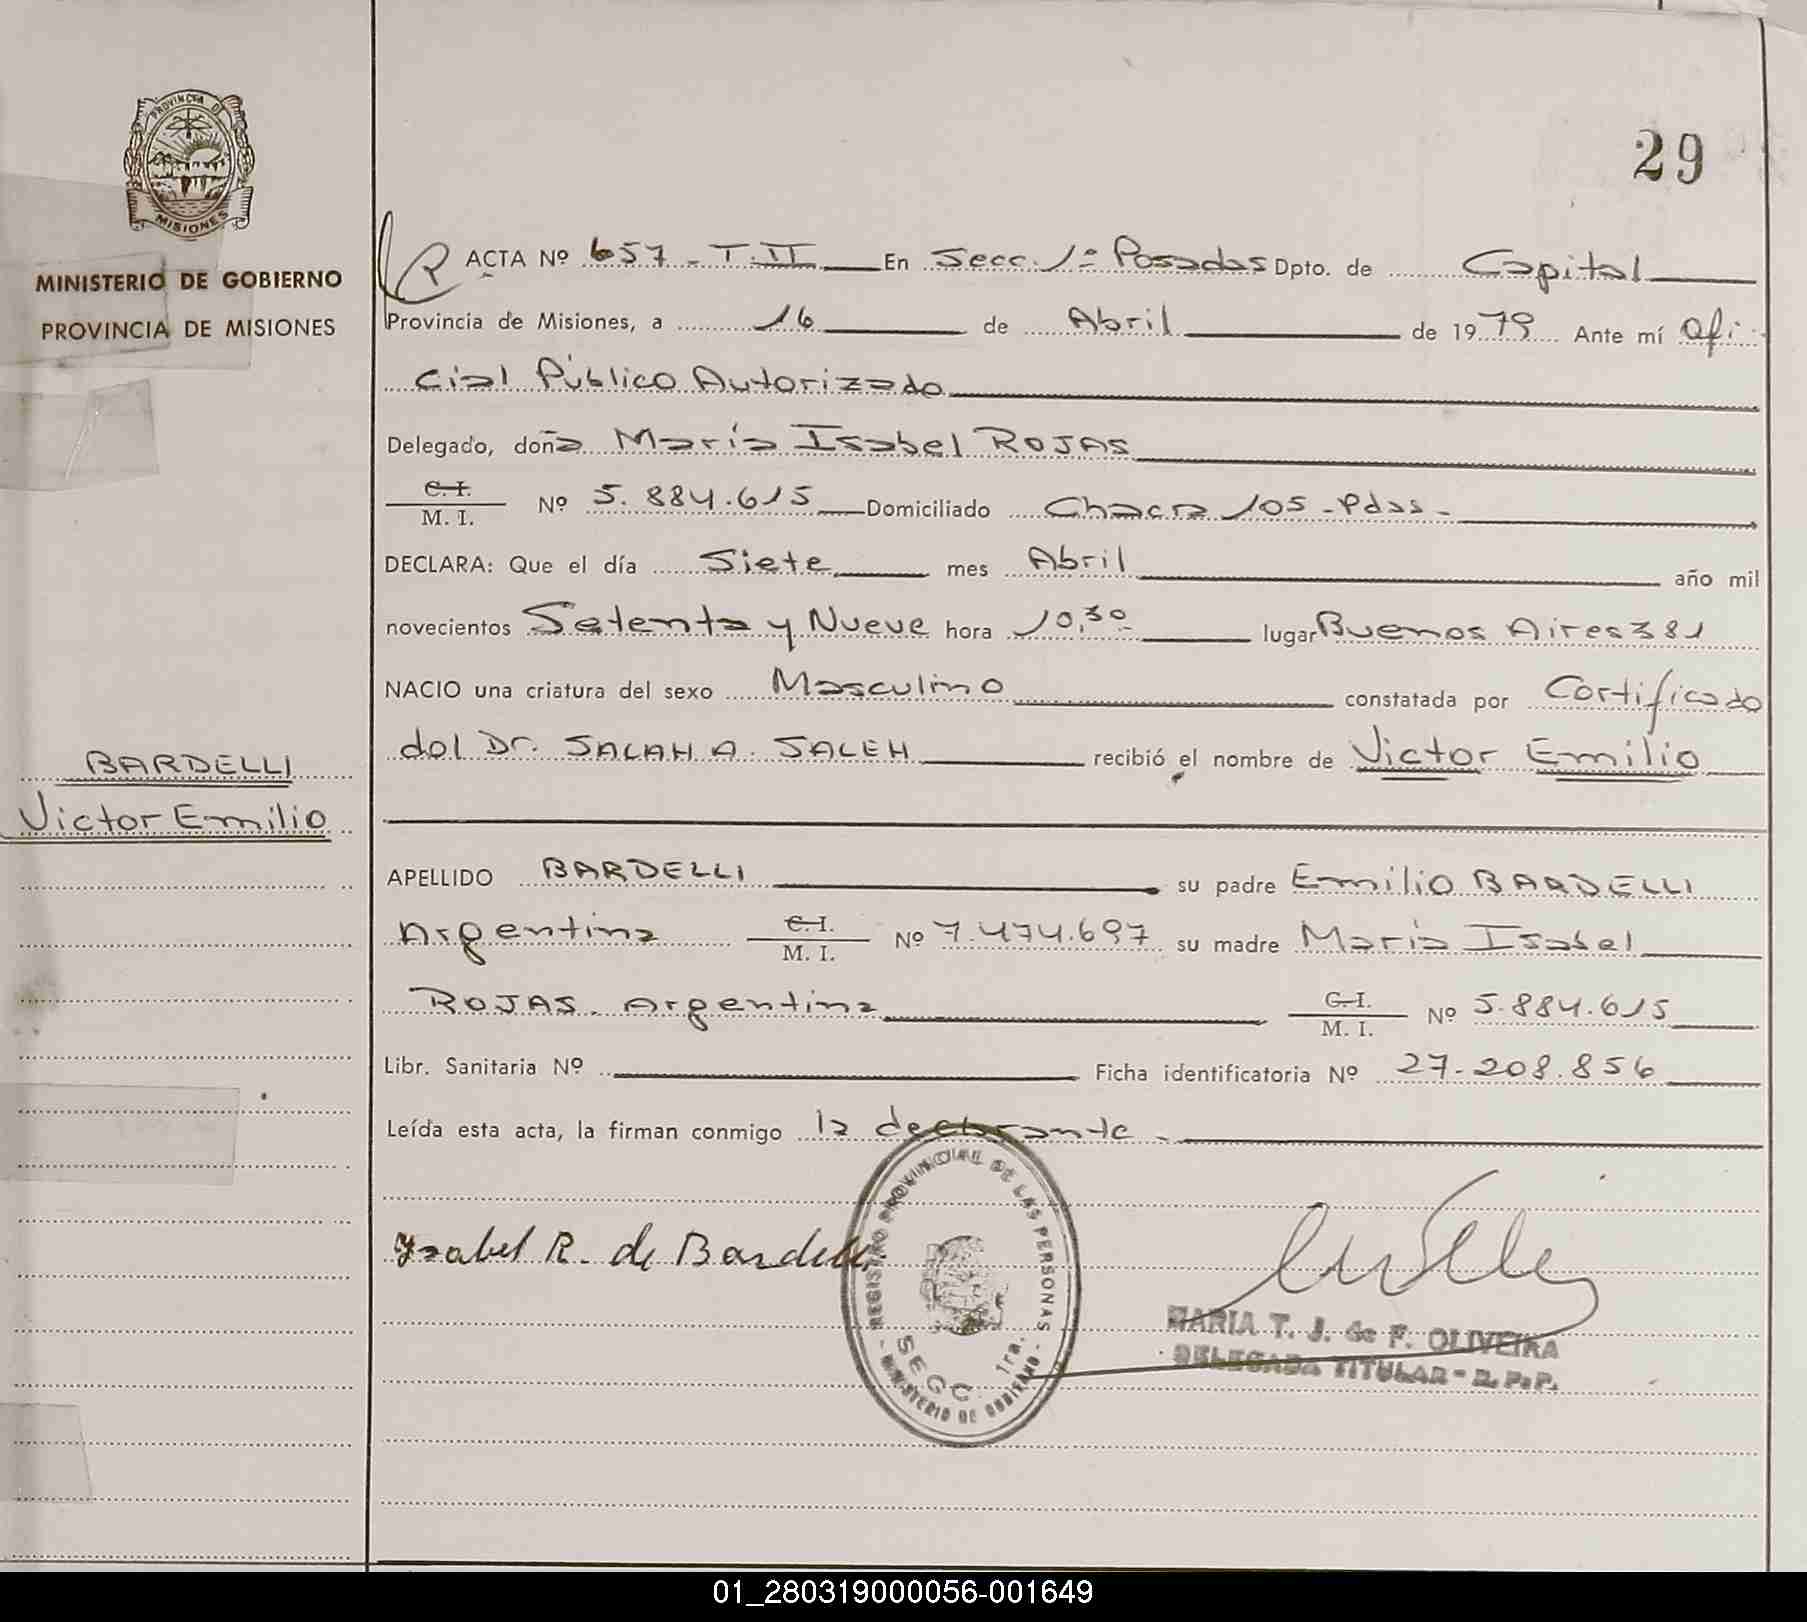 PROVINCIA DE
MISIONES
MINISTERIO DE GOBIERNO
PROVINCIA DE MISIONES
BARDELLI
Victor Emilio
29
ACTA Nº 657 - T. II En Secc. 1º Posadas Dpto. de Capital
Provincia de Misiones, a 16 de Abril de 1979 Ante mí Ofi-
cial Público Autorizado
Delegado, doña María Isabel ROJAS
C. I.
M. I. Nº 5.884.615 Domiciliado Chacra 105 - Pdas -
DECLARA: Que el día Siete mes Abril año mil
novecientos Setenta y Nueve hora 10,30 lugar Buenos Aires 381
NACIO una criatura del sexo Masculino constatada por Certificado
del Dr. SALAH A. SALEH recibió el nombre de Victor Emilio
APELLIDO BARDELLI su padre Emilio BARDELLI
Argentina C. I. M. I. Nº 7.474.697 su madre María Isabel
ROJAS. Argentina C. I. M. I. Nº 5.884.615
Libr. Sanitaria Nº Ficha identificatoria Nº 27.208.856
Leída esta acta, la firman conmigo la declarante -
Isabel R. de Bardelli
REGISTRO PROVINCIAL DE LAS PERSONAS
SECC. 1ra.
MINISTERIO DE GOBIERNO
MARIA T. J. de F. OLIVEIRA
DELEGADA TITULAR - R. P. P.
01_280319000056-001649